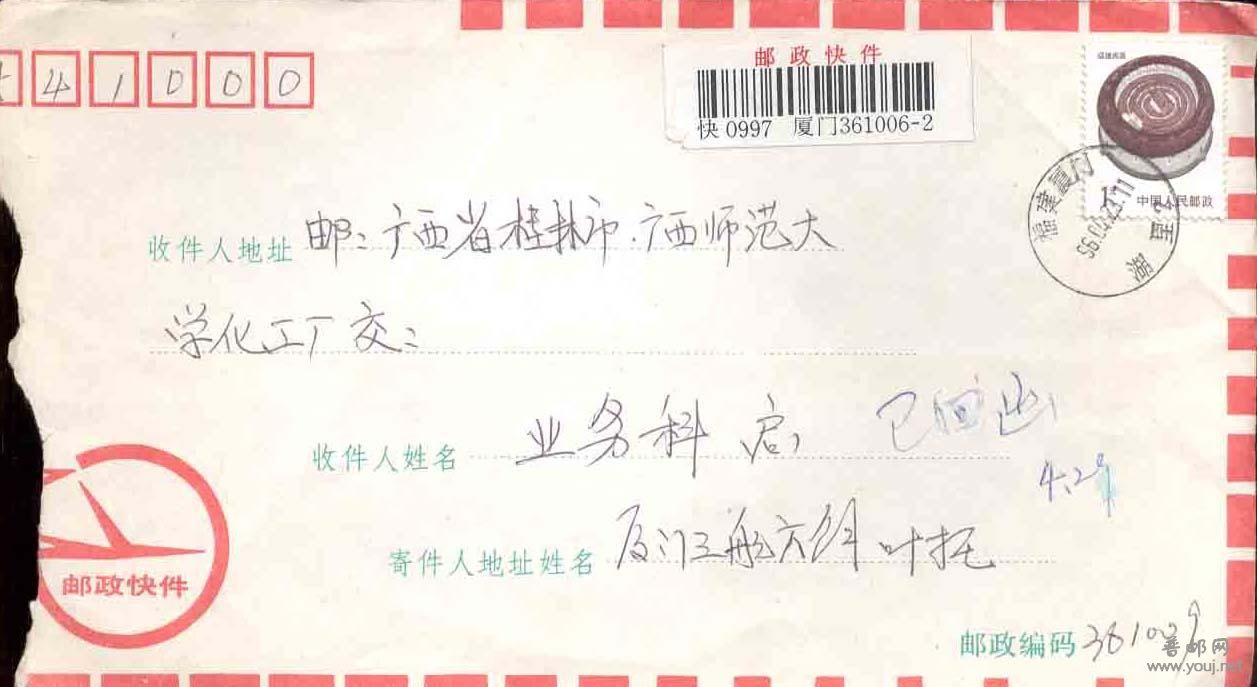 541000
邮政快件
快 0997 厦门361006-2
福建民居
1
中国人民邮政
福建厦门
收件人地址 邮:广西省桂林市.广西师范大
学化工厂交:
收件人姓名 业务科 启
已回函
4.29
寄件人地址姓名 厦门三航六 叶托
邮政快件
邮政编码 361009
普邮网
www.youj.net